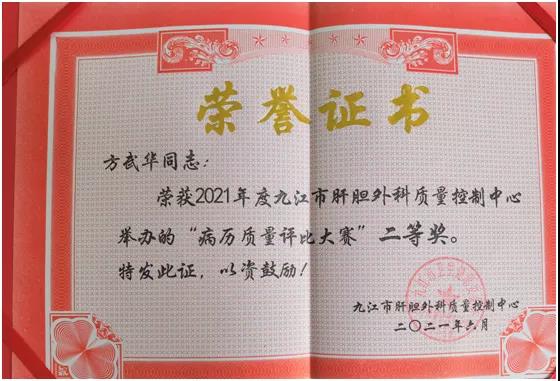 荣誉证书
方武华同志：
荣获2021年度九江市肝胆外科质量控制中心
举办的“病历质量评比大赛”二等奖。
特发此证，以资鼓励！
九江市肝胆外科质量控制中心
二〇二一年六月